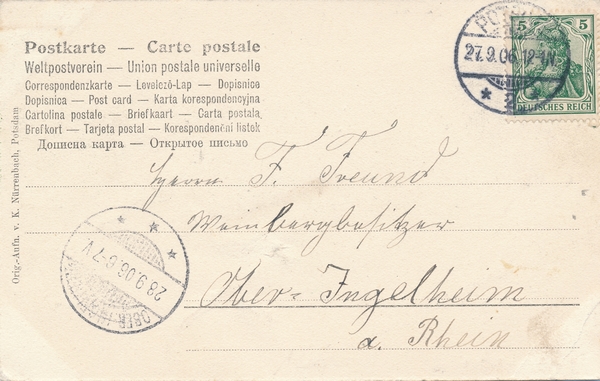 Postkarte — Carte postale
Weltpostverein — Union postale universelle
Correspondenzkarte — Levelező-Lap — Dopisnice
Dopisnica — Post card — Karta korespondencyjna
Cartolina postale — Briefkaart — Carta postala
Brefkort — Tarjeta postal — Korespondenční listek
Дописна карта — Открытое письмо
Orig.-Aufn. v. K. Nürrenbach, Potsdam
POTSDAM
27.9.06.12-1N.
* 2 *
5 5
DEUTSCHES REICH
Herrn F. Freund
Weinbergbesitzer
Ober-Ingelheim
a. Rhein
28.9.06.6-7V
OBER